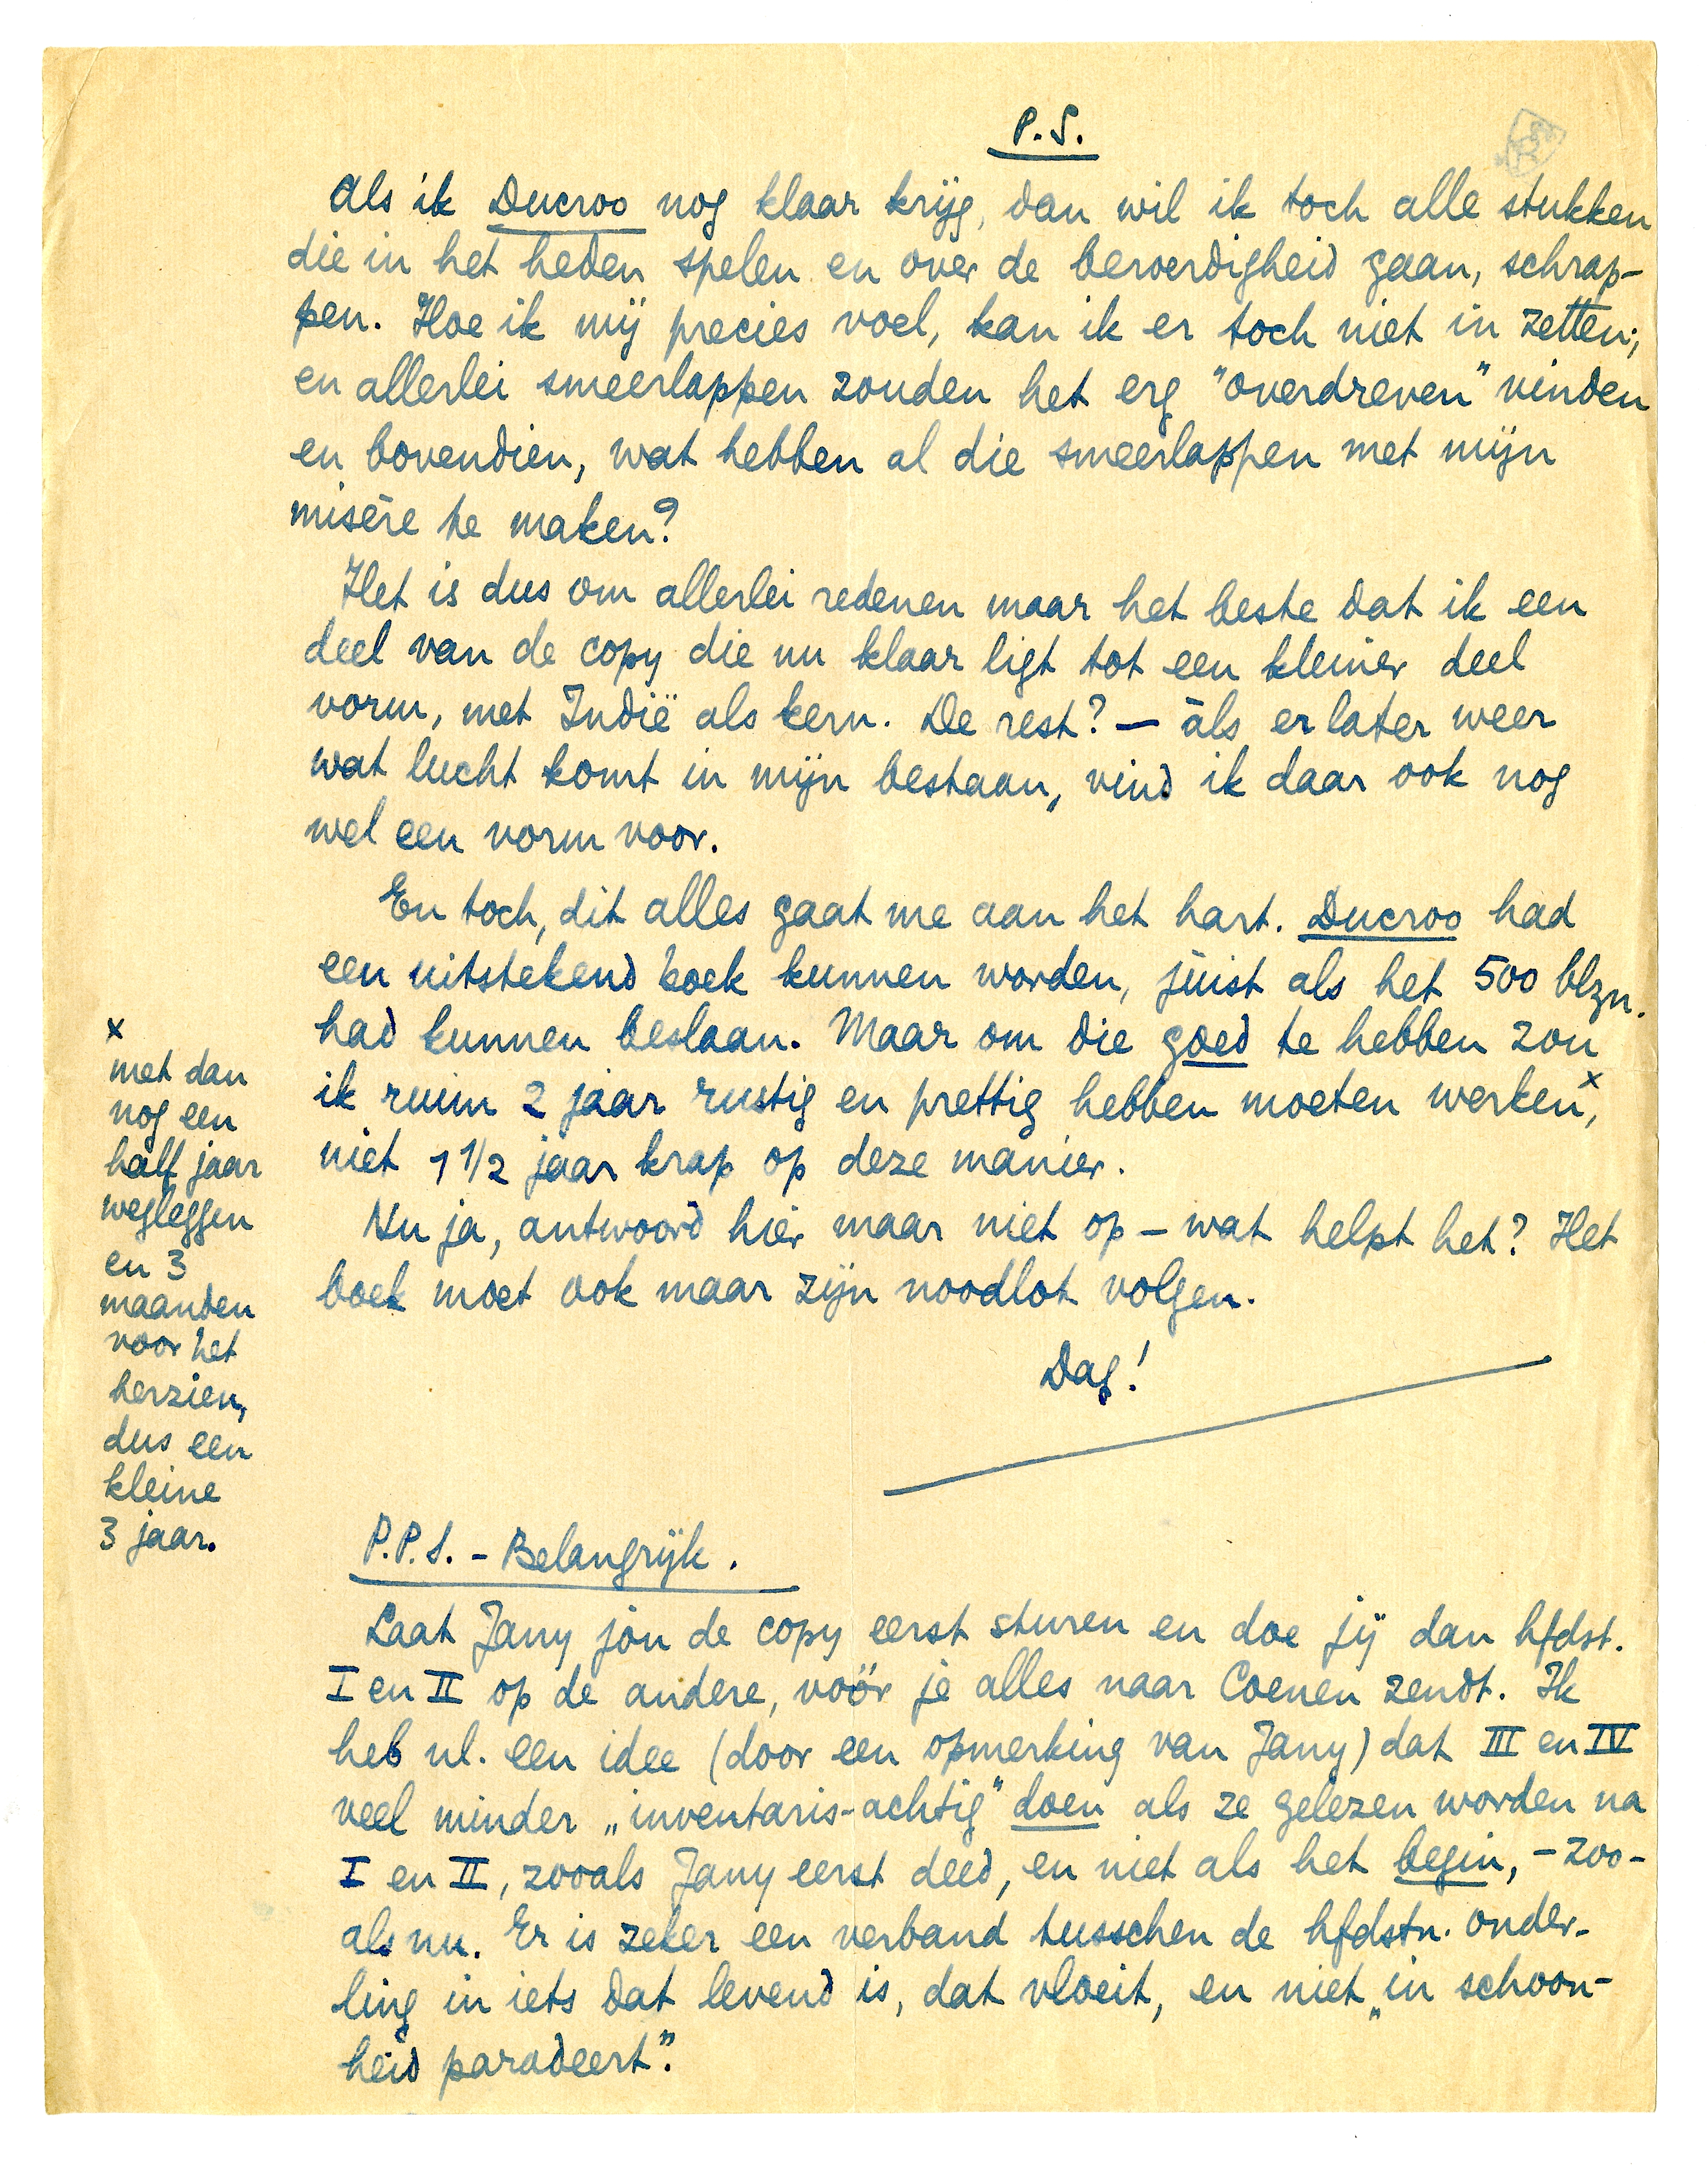 P.S.
Als ik Ducroo nog klaar krijg, dan wil ik toch alle stukken
die in het heden spelen en over de beroerdigheid gaan, schrap-
pen. Hoe ik mij precies voel, kan ik er toch niet in zetten;
en allerlei smeerlappen zouden het erg "overdreven" vinden
en bovendien, wat hebben al die smeerlappen met mijn
misère te maken?
Het is dus om allerlei redenen maar het beste dat ik een
deel van de copy die nu klaar ligt tot een kleiner deel
vorm, met Indië als kern. De rest? — àls er later weer
wat lucht komt in mijn bestaan, vind ik daar ook nog
wel een vorm voor.
En toch, dit alles gaat me aan het hart. Ducroo had
een uitstekend boek kunnen worden, júist als het 500 blzn.
had kunnen beslaan. Maar om die goed te hebben zou
ik ruim 2 jaar rustig en prettig hebben moeten werken x,
niet 1 1/2 jaar krap op deze manier.
Nu ja, antwoord hier maar niet op – wat helpt het? Het
boek moet ook maar zijn noodlot volgen.
Dag!
x
met dan
nog een
half jaar
wegleggen
en 3
maanden
voor het
herzien,
dus een
kleine
3 jaar.
P.P.S. – Belangrijk.
Laat Jany jòu de copy eerst sturen en doe jij dan hfdst.
I en II op de andere, vóór je alles naar Coenen zendt. Ik
heb nl. een idee (door een opmerking van Jany) dat III en IV
veel minder „inventaris-achtig" doen als ze gelezen worden na
I en II, zooals Jany eerst deed, en niet als het begin, – zoo-
als nu. Er is zeker een verband tusschen de hfdstn. onder-
ling in iets dat levend is, dat vloeit, en niet „in schoon-
heid paradeert".